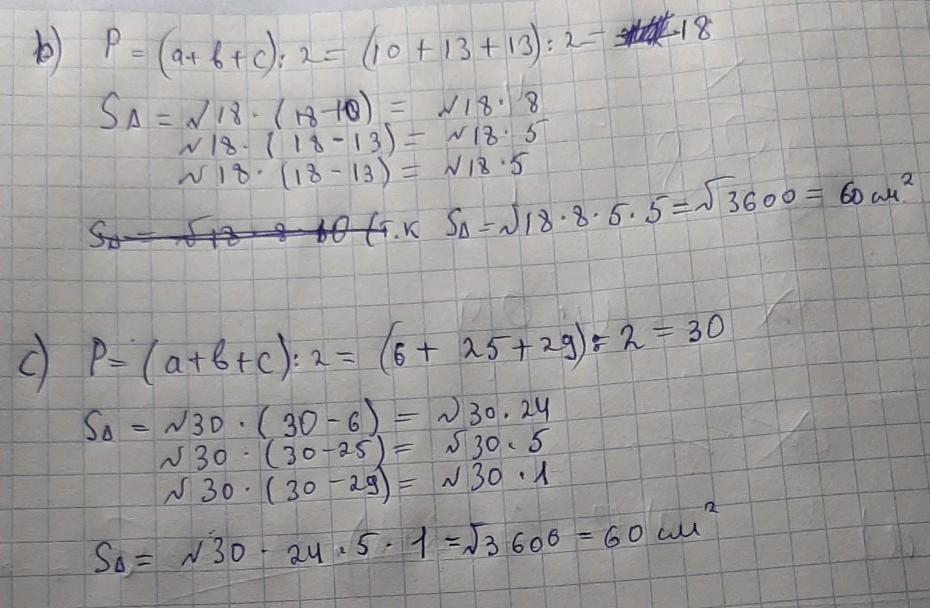 b) P = (a+b+c):2 = (10+13+13):2 = 18
S∆ = √18·(18-10) = √18·8
√18·(18-13) = √18·5
√18·(18-13) = √18·5
S∆ = √18·8·5·5 = √3600 = 60 см²
c) P = (a+b+c):2 = (6+25+29):2 = 30
S∆ = √30·(30-6) = √30·24
√30·(30-25) = √30·5
√30·(30-29) = √30·1
S∆ = √30·24·5·1 = √3600 = 60 см²